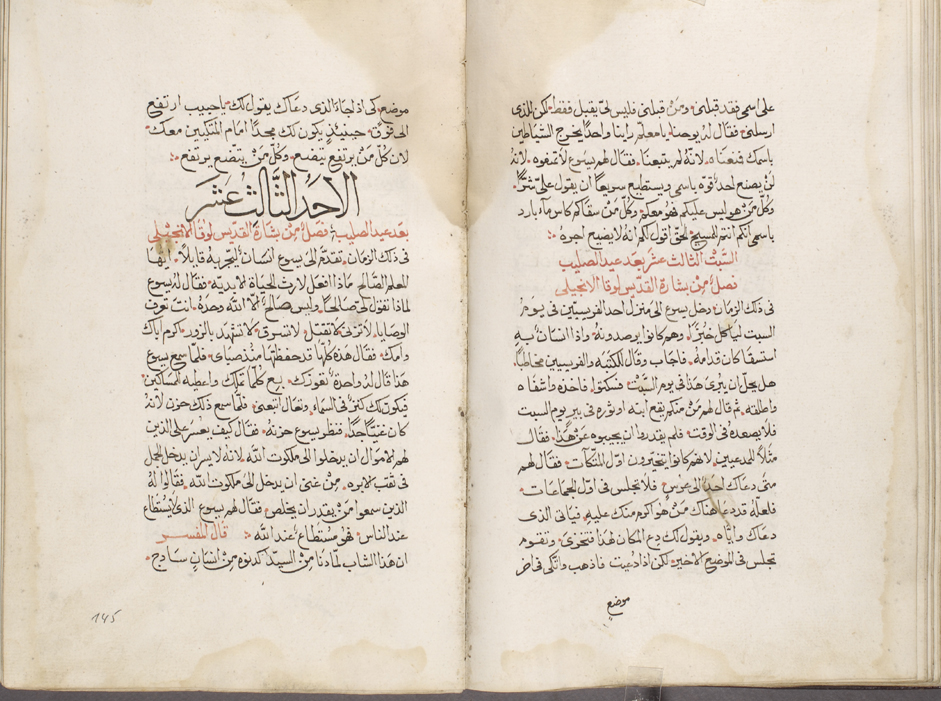 على اسمى فقد قبلنى ومن قبلنى فليس لى يقبل فقط لكن للذى
ارسلنى فقال له يوحنا يا معلم راينا واحدًا يخرج الشياطين
باسمك فمنعناه لانه لم يتبعنا فقال لهم يسوع لا تمنعوه لانه
لن يصنع احد قوه باسمى ويستطيع سريعا ان يقول على شرًّا
وكل من هو ليس عليكم فهو معكم وكل من سقاكم كاس ماء بارد
باسمى انكم انتم للمسيح الحق اقول لكم انه لا يضيع اجره
السبت الثالث عشر بعد عيد الصليب
فصل من بشارة القديس لوقا الانجيلى
فى ذلك الزمان دخل يسوع الى منزل احد الفريسيين فى يوم
السبت لياكل خبزًا وهم كانوا يرصدونه واذا انسان به
استسقا كان قدامه فاجاب وقال للكتبه والفريسيين مخاطبًا
هل يحل ان يبرى هذا فى يوم السبت فسكتوا فاخذه واشفاه
واطلقه ثم قال لهم من منكم يقع ابنه او ثوره فى بير يوم السبت
فلا يصعده فى الوقت فلم يقدروا ان يجيبوه عن هذا فقال
مثلاً للمدعيين لانهم كانوا يتخيرون اول المتكات فقال لهم
متى دعاك احد الى عرس فلا تجلس فى اول الجماعات
فلعله قد دعا هناك من هو اكرم منك عليه فياتى الذى
دعاك واياه ويقول لك دع المكان لهذا فتخزى وتقوم
تجلس فى الموضع الاخير لكن اذا دعيت فاذهب واتكى فى اخر
موضع
موضع كى اذا جاء الذى دعاك يقول لك يا حبيب ارتفع
الى فوق حينيذٍ يكون لك مجدًا امام المتكيين معك
لان كل من يرتفع يتضع وكل من يتضع يرتفع
الاحد الثالث عشر
بعد عيد الصليب فصل من بشارة القديس لوقا الانجيلى
فى ذلك الزمان تقدم الى يسوع انسان ليجربه قايلاً ايها
المعلم الصالح ماذا افعل لارث الحياة الابديه فقال له يسوع
لماذا تقول لى صالحًا وليس صالح الا الله وحده انت تعرف
الوصايا لا تزن لا تقتل لا تسرق لا تشهد بالزور اكرم اباك
وامك فقال هذه كلها قد حفظتها منذ صباى فلما سمع يسوع
هذا قال له واحدة تعوزك بع كلما تملك واعطيه للمساكين
فيكون لك كنز فى السماء وتعال اتبعنى فلما سمع ذلك حزن لانه
كان غنيًا جدًا فنظر يسوع حزنه فقال كيف يعسر على الذين
لهم الاموال ان يدخلوا الى ملكوت الله لانه لايسر ان يدخل الجمل
فى ثقب الابره من غنى ان يدخل الى ملكوت الله فقالوا له
الذين سمعوا من يقدر ان يخلص فقال لهم يسوع الذى لا يستطاع
عند الناس فهو مستطاع عند الله قال المفسر
ان هذا الشاب لما دنا من السيد كدنوه من انسان ساذج
145